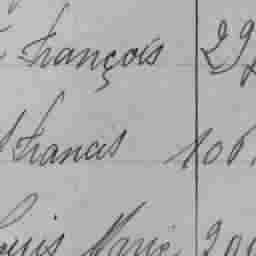 François 29
Francis 106
Louis Marie 200